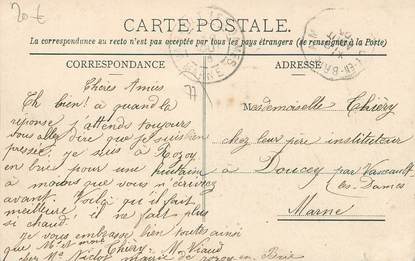 20 €
CARTE POSTALE.
La correspondance au recto n'est pas acceptée par tous les pays étrangers (se renseigner à la Poste)
CORRESPONDANCE
ADRESSE
Chères Amies
Eh bien! à quand la
réponse j'attends toujours
vous allez dire que je suis bien
pressée. je suis à Rozoy
en brie pour une huitaine
à moins que vous n'écriviez
avant. Voilà qu'il fait
meilleur! il ne fait plus
si chaud.
Je vous embrasse bien toutes ainsi
que Mr et Mme Thiéry. M. Viaud
chez Mr maire de rozoy en Brie
Mesdemoiselle Thiéry
chez leur père instituteur
à Doucey par Vanault
les-Dames
Marne